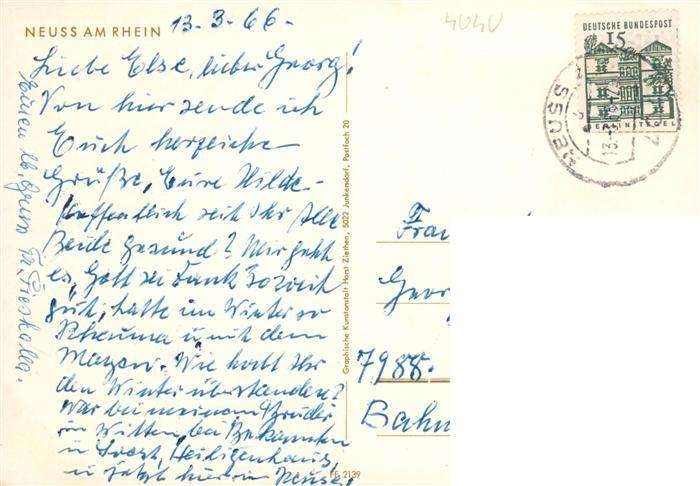 NEUSS AM RHEIN
13.3.66.
4040
DEUTSCHE BUNDESPOST
15
BERLIN-TEGEL
NEUSS
Liebe Else, lieber Georg!
Von hier sende ich
Euch herzliche
Grüße, Eure Hilde
Hoffentlich seit Ihr Alle
Beide Gesund? Mir geht
es, Gott sei Dank soweit
gut, hatte im Winter so
Rheuma u. mit dem
Magen. Wie habt Ihr
den Winter überstanden?
War bei meinem Bruder
in Witten, bei Bekannten
in Soest, Heiligenhaus,
u jetzt hier in Neuss.
Einen lb. Gruß
Graphische Kunstanstalt Horst Ziethen, 5022 Junkersdorf, Postfach 20
FF 2139
Frau
Georg
7988.
Bahn